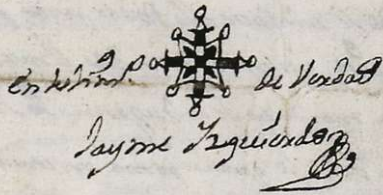 en testim.º de Verdad
Jayme Izquierdo